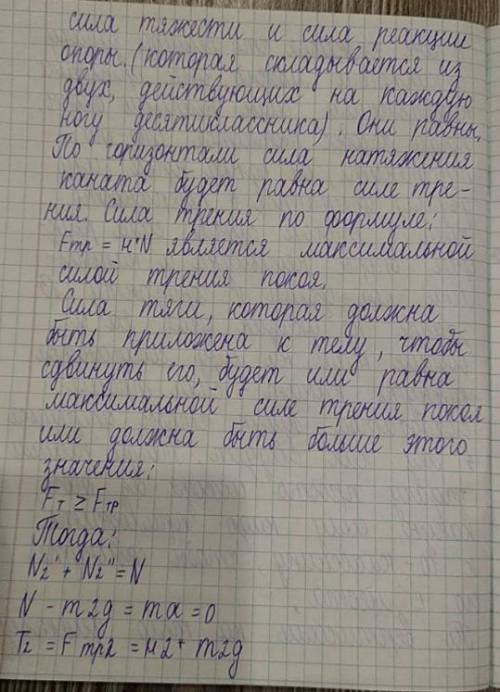 сила тяжести и сила реакции
опоры. (которая складывается из
двух, действующих на каждую
ногу десятиклассника). Они равны.
По горизонтали сила натяжения
каната будет равна силе тре-
ния. Сила трения по формуле:
Fтр = м*N является максимальной
силой трения покоя.
Сила тяги, которая должна
быть приложена к телу, чтобы
сдвинуть его, будет или равна
максимальной силе трения покоя
или должна быть больше этого
значения:
Fт ≥ Fтр
Тогда:
N2' + N2'' = N
N - m2g = ma = 0
T2 = Fтр2 = м2* m2g